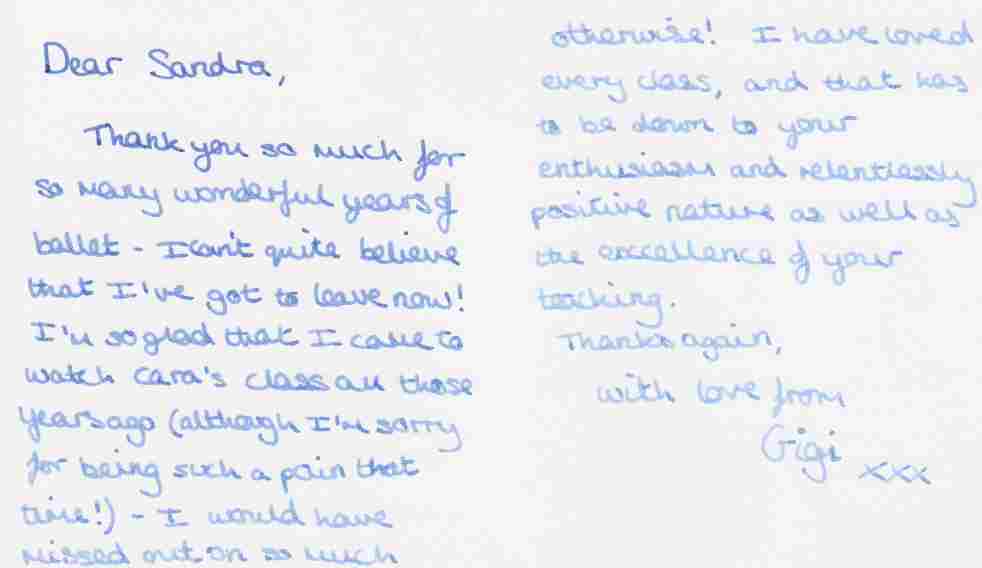 Dear Sandra,
Thank you so much for
so many wonderful years of
ballet - I can't quite believe
that I've got to leave now!
I'm so glad that I came to
watch Cara's class all those
years ago (although I'm sorry
for being such a pain that
time!) - I would have
missed out on so much
otherwise! I have loved
every class, and that has
to be down to your
enthusiasm and relentlessly
positive nature as well as
the excellence of your
teaching.
Thanks again,
with love from
Gigi xxx